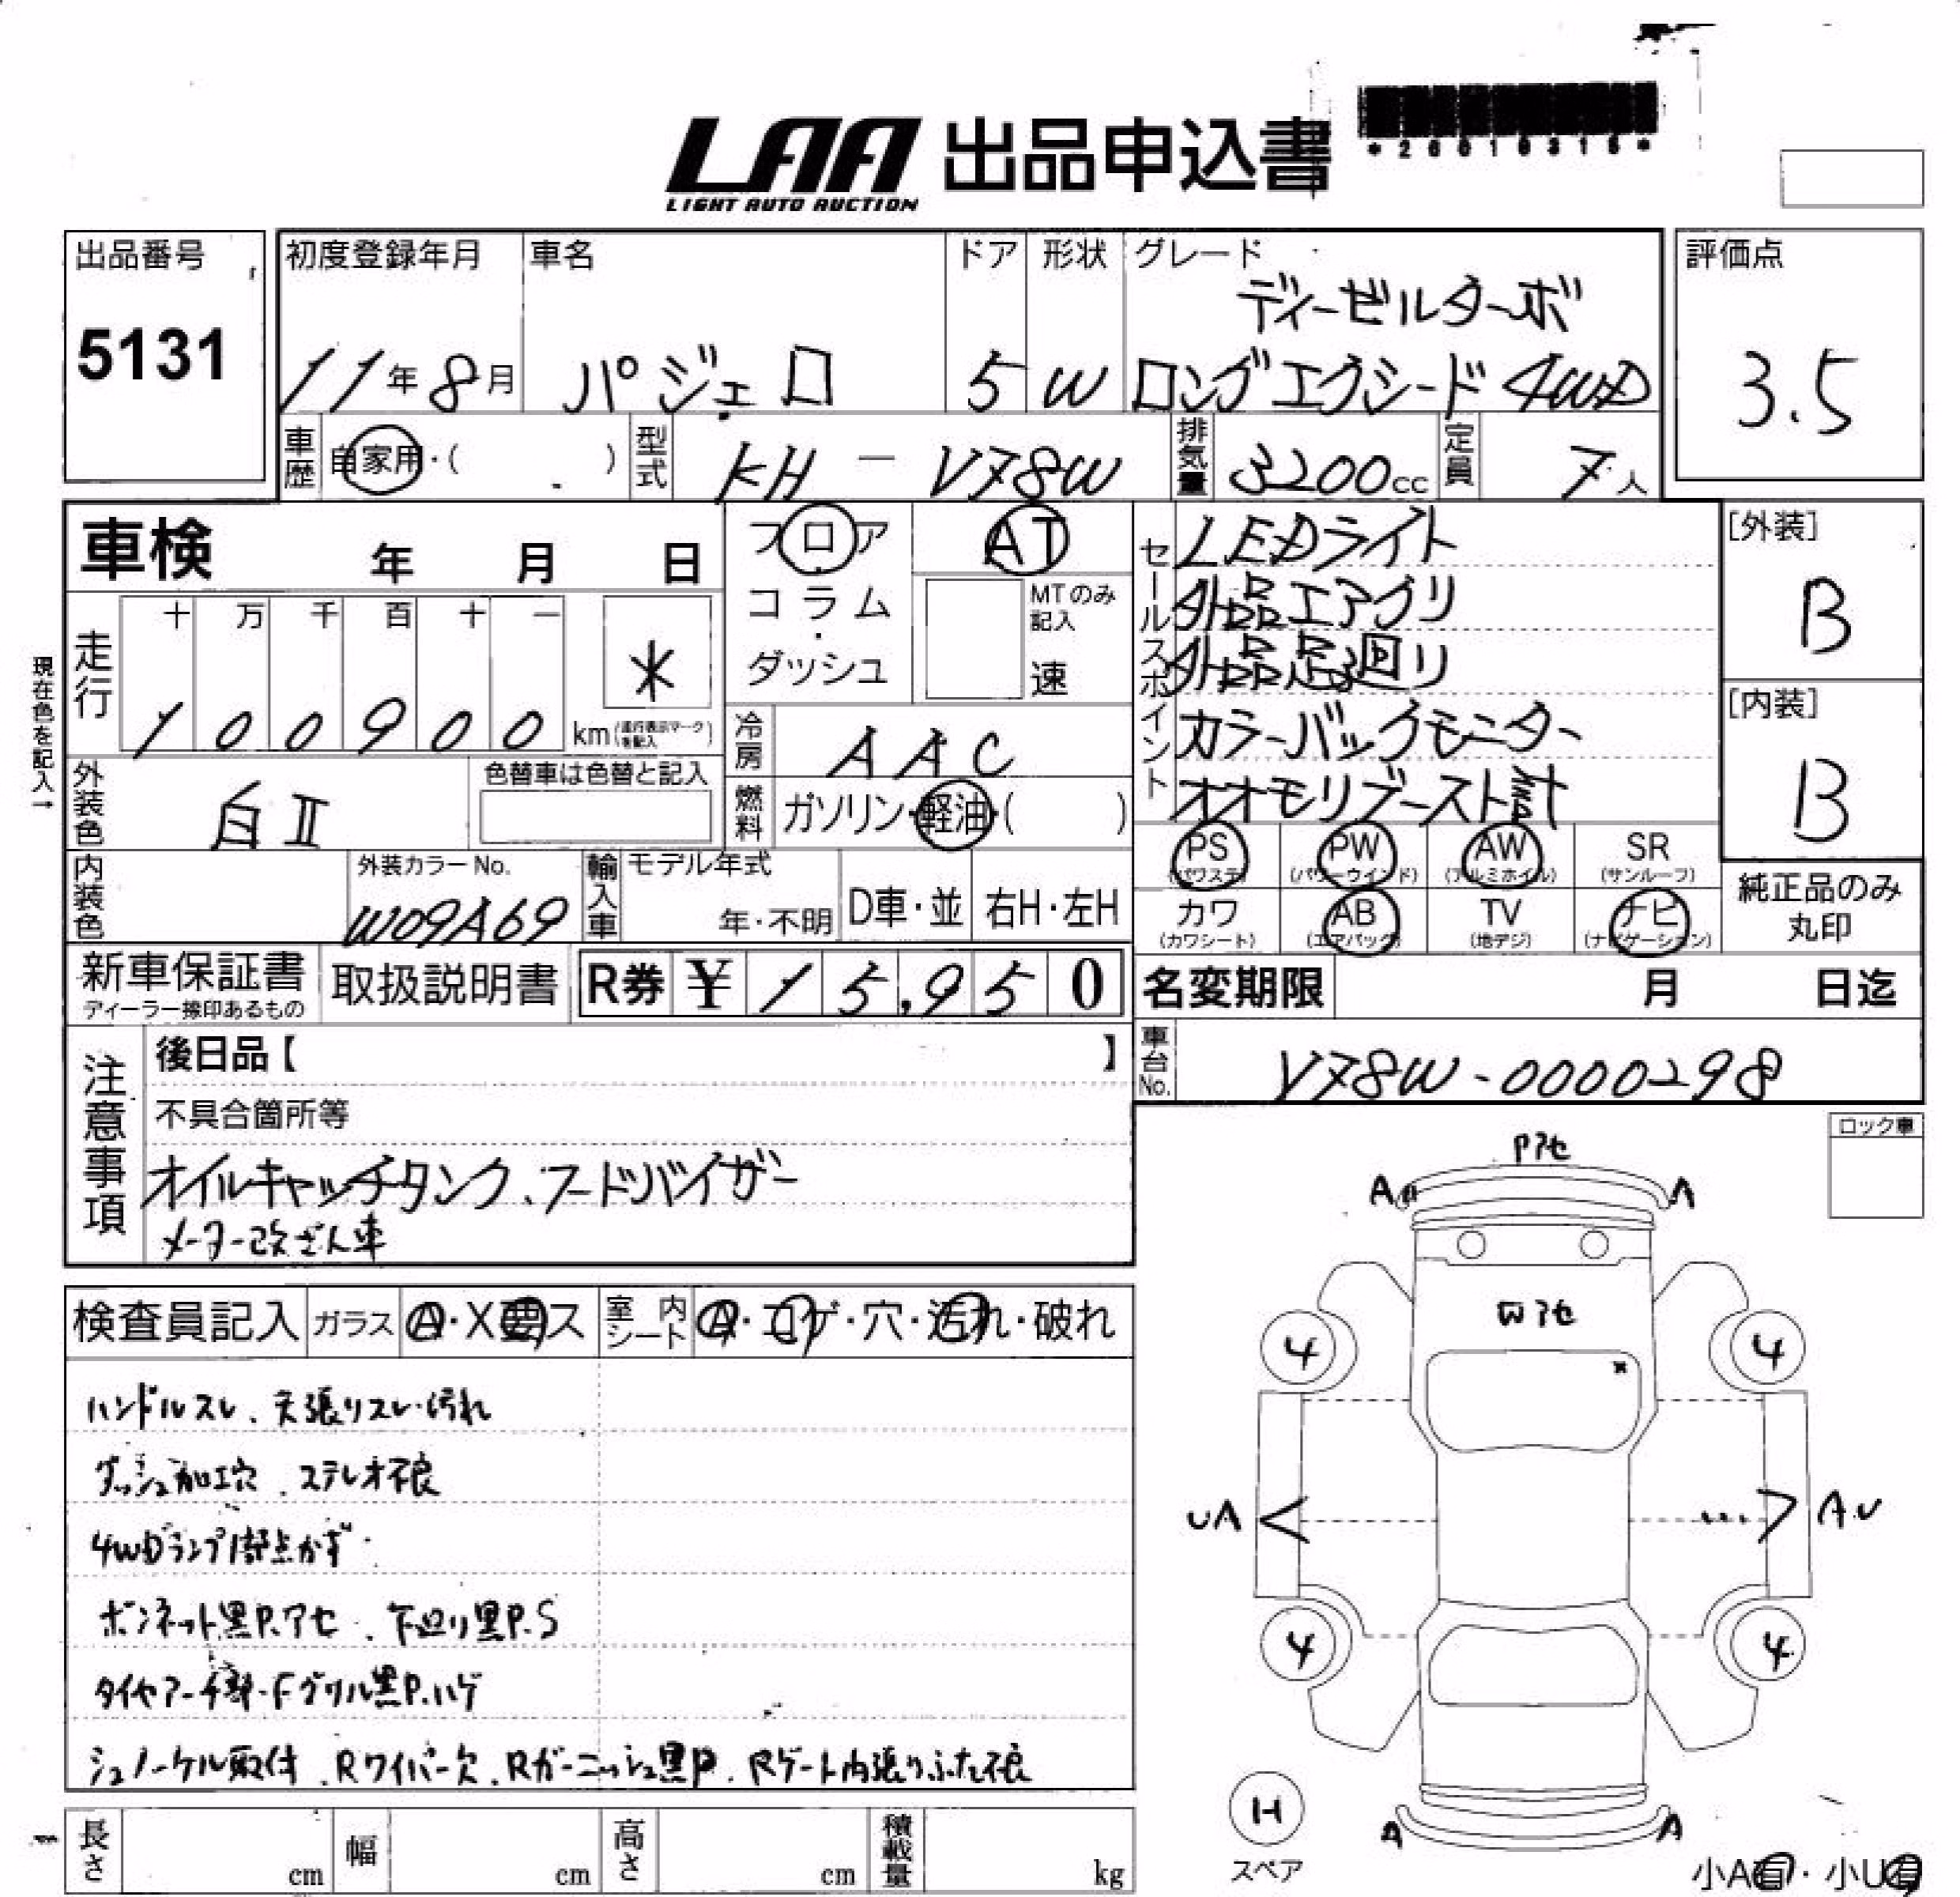 LAA 出品申込書
LIGHT AUTO AUCTION
*26010315*
出品番号
5131
初度登録年月 車名 ドア 形状 グレード
ディーゼルターボ
11年 8月 パジェロ 5 W ロングエクシード 4WD
評価点
3.5
車歴 自家用・( ) 型式 KH-V78W 排気量 3200cc 定員 7人
車検 年 月 日
フロア
コラム
・
ダッシュ
AT
MTのみ記入
速
セールスポイント
LEDライト
外品エアクリ
外品足回り
カラーバックモニター
オオモリブースト計
[外装]
B
[内装]
B
現在色を記入→
走行
十 万 千 百 十 一
1 0 0 9 0 0 km(走行表示マークを記入)
*
冷房 AAC
燃料 ガソリン・軽油・( )
外装色 白Ⅱ
色替車は色替と記入
内装色
外装カラーNo.
W09A69
輸入車
モデル年式
年・不明
D車・並 右H・左H
PS(パワステ) PW(パワーウインド) AW(アルミホイル) SR(サンルーフ)
カワ(カワシート) AB(エアバッグ) TV(地デジ) ナビ(ナビゲーション)
純正品のみ
丸印
新車保証書
ディーラー捺印あるもの
取扱説明書
R券 ¥ 15,950
名変期限 月 日迄
車台No. V78W-0000298
注意事項
後日品【 】
不具合箇所等
オイルキャッチタンク、フードバイザー
メーター改ざん車
検査員記入 ガラス A・X要ス 室内シート A・コゲ・穴・汚れ・破れ
ハンドルスレ、天張りスレ・汚れ
ダッシュ加工穴、ステレオ不良
4WDランプ1部点かず
ボンネット黒P.アセ、下廻り黒P.S
タイヤアーチ部・Fグリル黒P.ハゲ
シュノーケル取付、Rワイパー欠、Rガーニッシュ黒P、Rゲート内張りふた不良
ロック車
Pアセ
A A
Wアセ
4 4
UA A.U
4 4
H
スペア
A A
小A有・小U有
長さ cm 幅 cm 高さ cm 積載量 kg